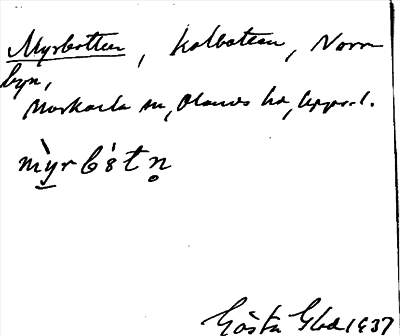 Myrbotten, Kalbotten, Norr-
byn,
Morkarla sn, Olands hd, Upps. l.
mỳ̱rbót n̥
Gösta Glad 1937